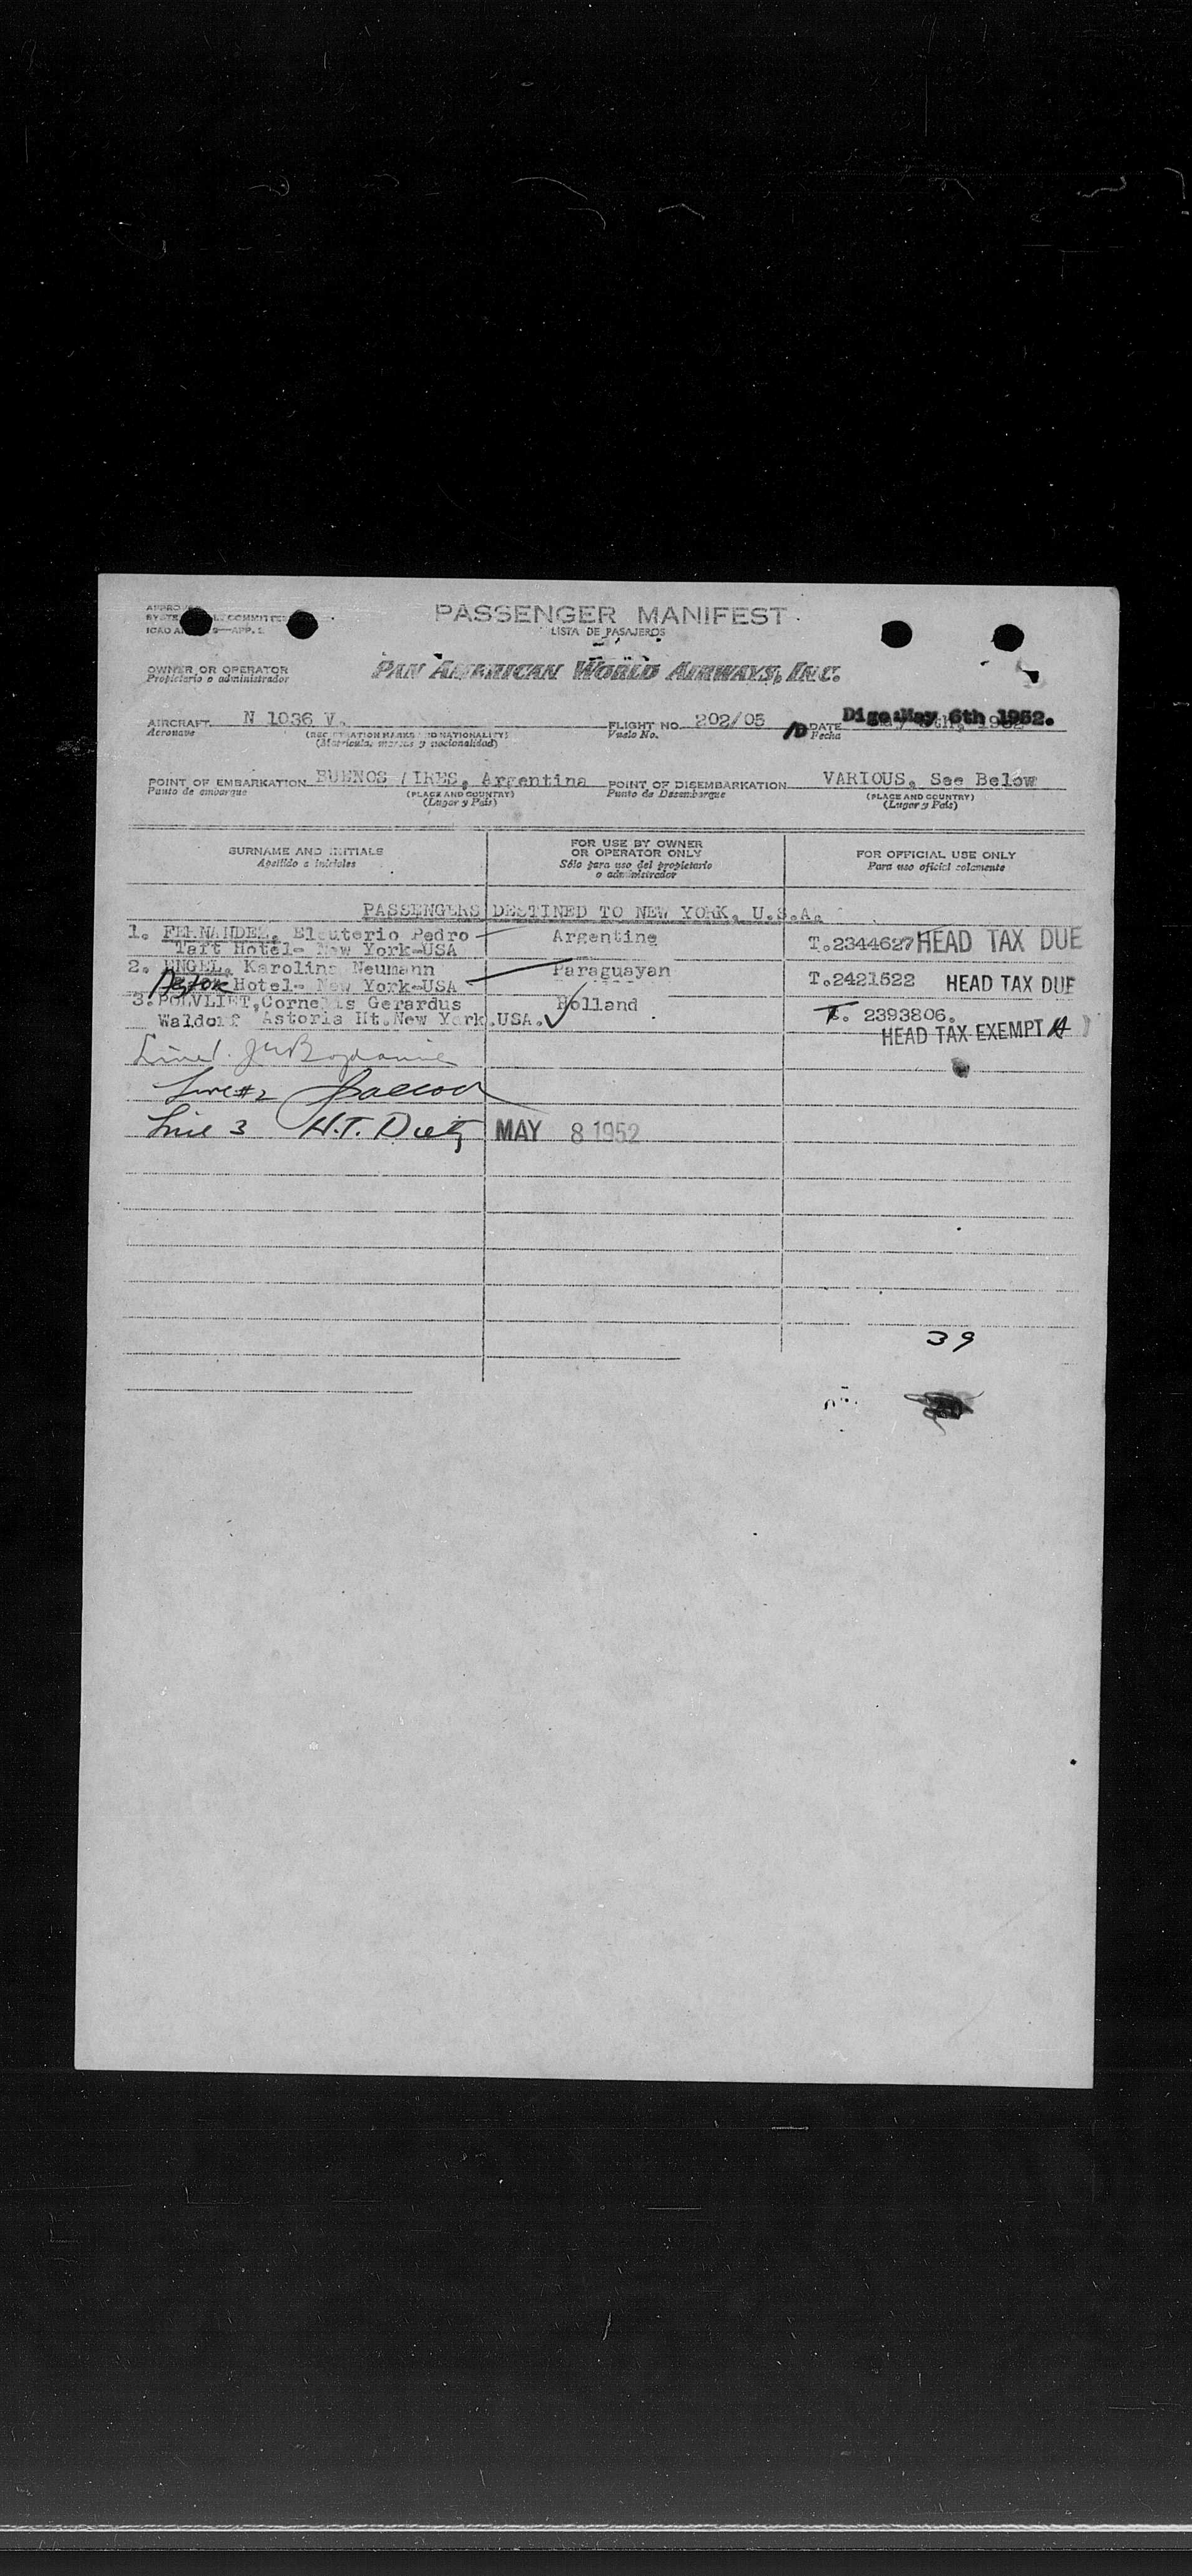 PASSENGER MANIFEST
LISTA DE PASAJEROS
OWNER OR OPERATOR
Propietario o administrador
PAN AMERICAN WORLD AIRWAYS, INC.
AIRCRAFT N 1036 V. FLIGHT NO. 202/05 DATE Digo:May 6th 1952.
Aeronave (REGISTRATION MARKS AND NATIONALITY) Vuelo No. Fecha
(Matricula, marcas y nacionalidad)
POINT OF EMBARKATION BUENOS AIRES, Argentina POINT OF DISEMBARKATION VARIOUS, See Below
Punto de embarque (PLACE AND COUNTRY) Punto de Desembarque (PLACE AND COUNTRY)
(Lugar y País) (Lugar y País)
SURNAME AND INITIALS FOR USE BY OWNER OR OPERATOR ONLY FOR OFFICIAL USE ONLY
Apellido e iniciales Sólo para uso del propietario o administrador Para uso oficial solamente
PASSENGERS DESTINED TO NEW YORK, U.S.A.
1. FERNANDEZ, Eleuterio Pedro Argentine T.2344627 HEAD TAX DUE
Taft Hotel- New York-USA
2. ENGEL, Karolina Neumann Paraguayan T.2421522 HEAD TAX DUE
Hotel- New York-USA
3. POLVLIET, Cornelis Gerardus Holland T. 2393806.
Waldorf Astoria Ht.New York.USA. HEAD TAX EXEMPT
Line 1.
Line #2
Line 3 H.T. Dietz MAY 8 1952
39